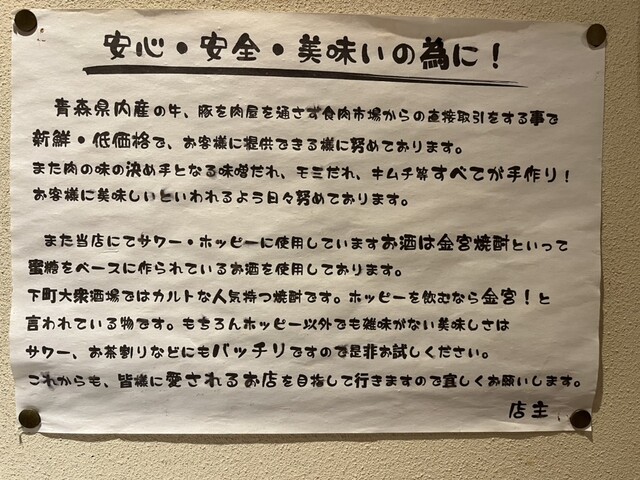 安心・安全・美味いの為に！
青森県内産の牛、豚を肉屋を通さず食肉市場からの直接取引をする事で
新鮮・低価格で、お客様に提供できる様に努めております。
また肉の味の決め手となる味噌だれ、モミだれ、キムチ等すべてが手作り！
お客様に美味しいといわれるよう日々努めております。
また当店にてサワー・ホッピーに使用していますお酒は金宮焼酎といって
蜜糖をベースに作られているお酒を使用しております。
下町大衆酒場ではカルトな人気持つ焼酎です。ホッピーを飲むなら金宮！と
言われている物です。もちろんホッピー以外でも雑味がない美味しさは
サワー、お茶割りなどにもバッチリですので是非お試しください。
これからも、皆様に愛されるお店を目指して行きますので宜しくお願いします。
店主